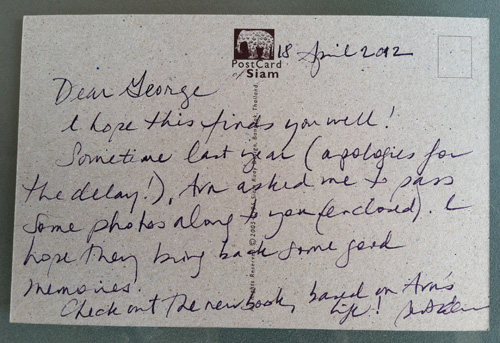 18 April 2012
PostCard
of Siam
Dear George
I hope this finds you well!
Sometime last year (apologies for
the delay!), Arn asked me to pass
some photos along to you (enclosed). I
hope they bring back some good
memories.
Check out the new book, based on Arn's
life!